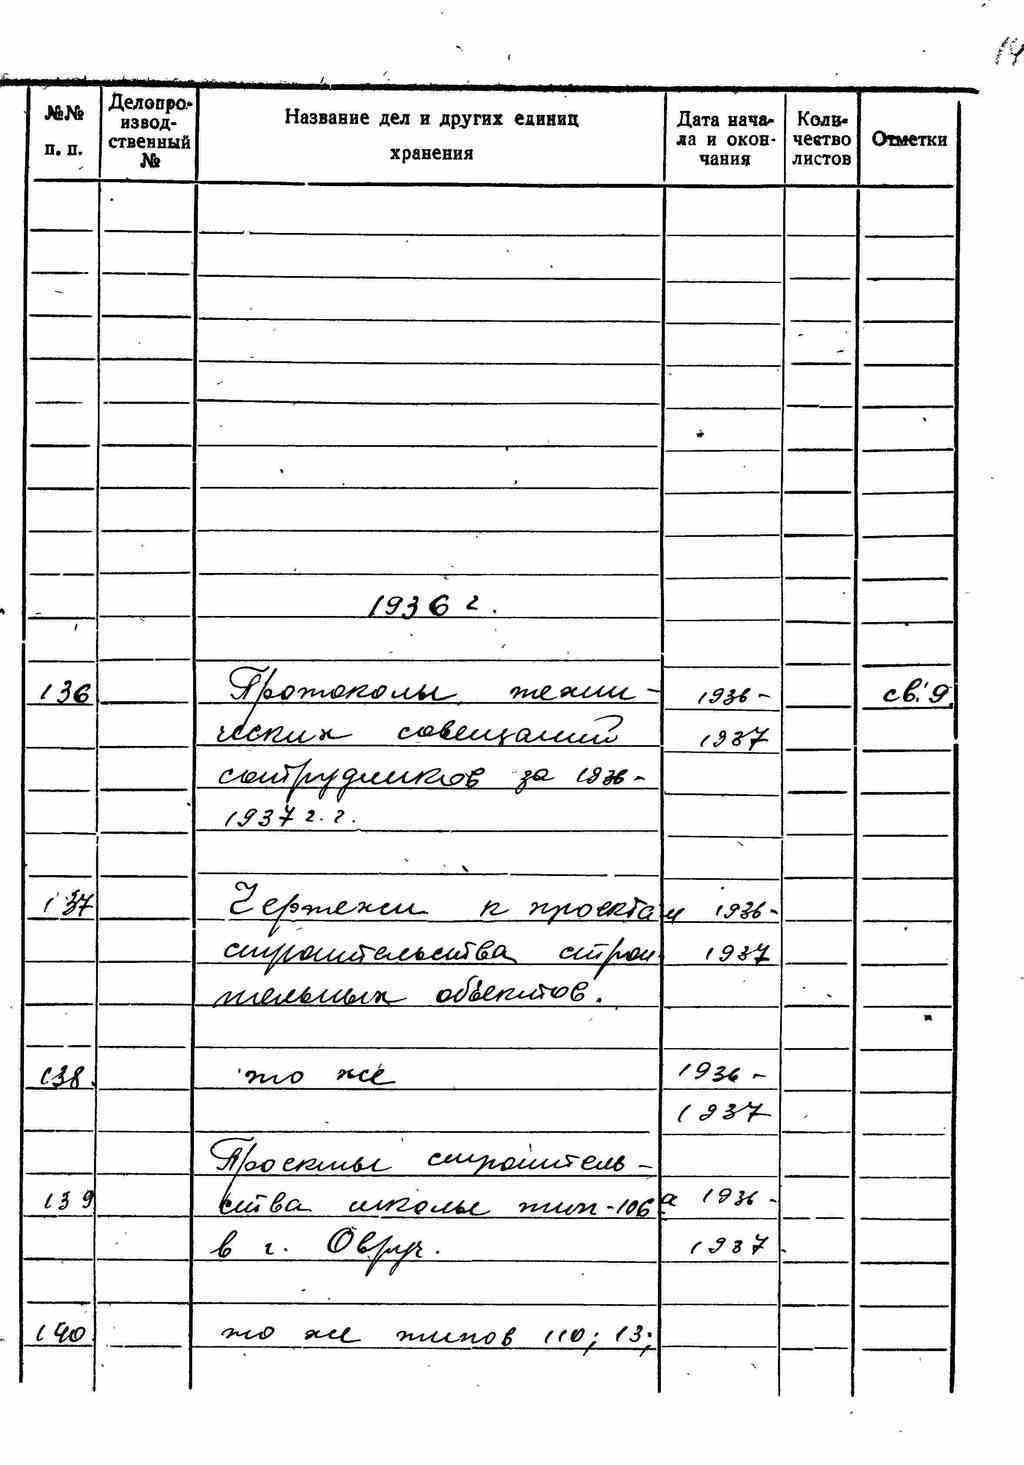 14
№№ п. п. Делопро- извод- ственный № Название дел и других единиц хранения Дата нача- ла и окон- чания Коли- чество листов Отметки
1936 г.
136 Протоколы техни- 1936- св. 9.
ческих совещаний 1937
сотрудников за 1936-
1937 г.г.
137 Чертежи к проектам 1936-
строительства строи- 1937
тельных объектов.
138. то же 1936-
1937
Проекты строитель-
139 ства школы тип-106а 1936-
в г. Овруч. 1937
140. то же типов 110; 13;